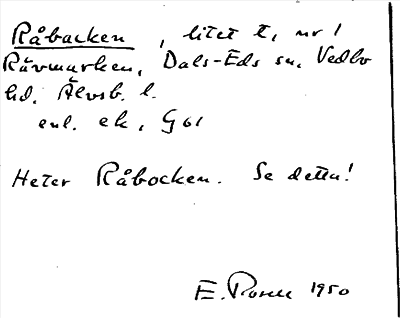 Råbacken, litet t, nr 1
Rävmarken, Dals-Eds sn, Vedbo
hd, Älvsb. l.
enl. ek, G61
Heter Råbocken. Se detta!
E. Rosell 1950